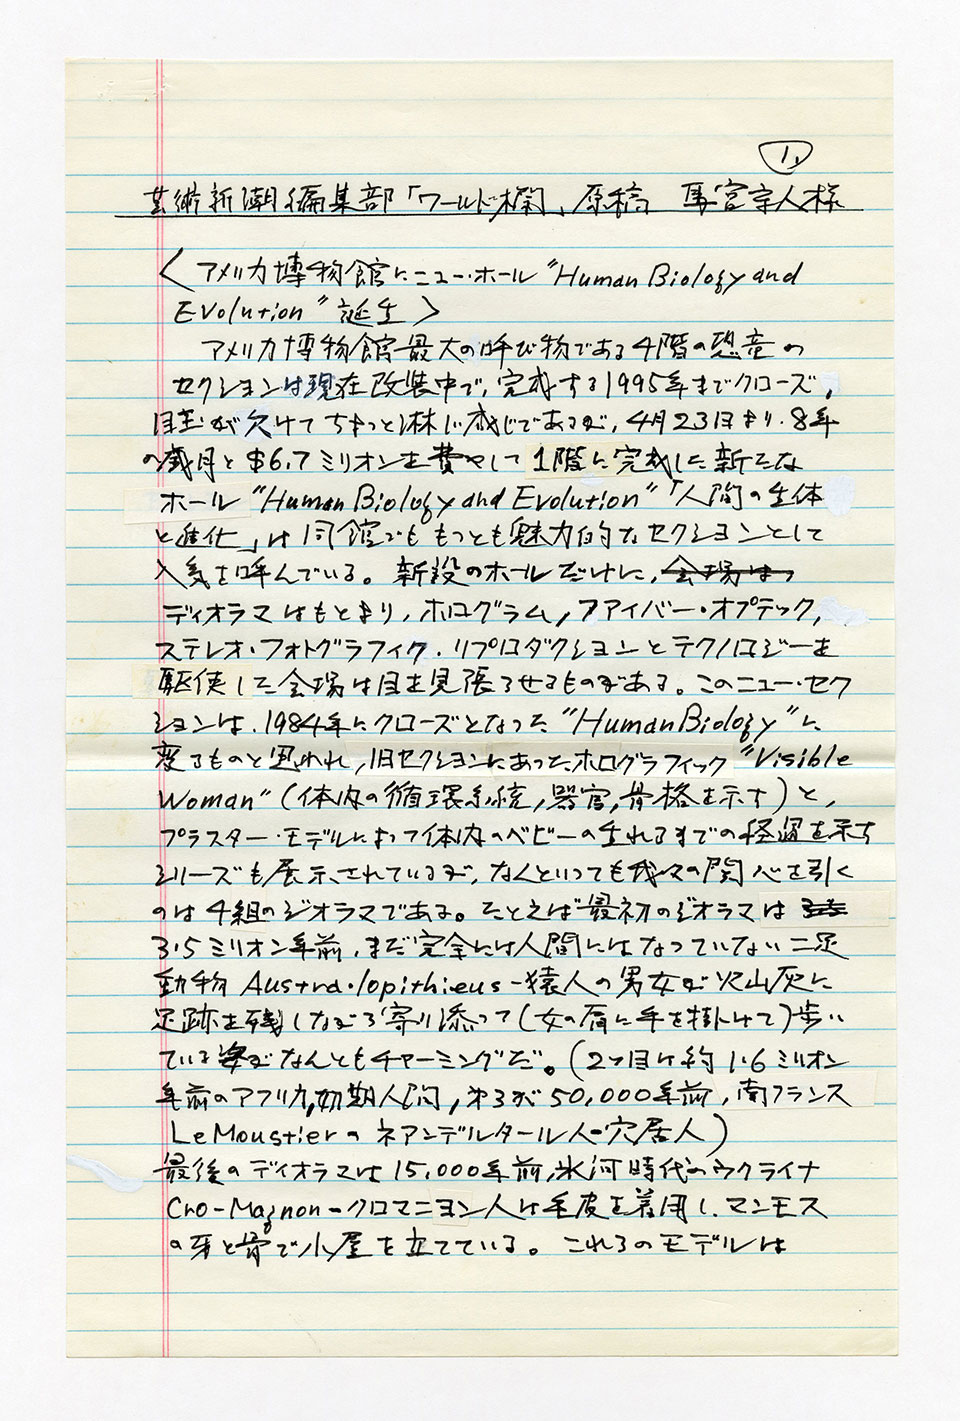 1,
芸術新潮編集部「ワールド欄」原稿 馬宮宗人様
〈アメリカ博物館にニュー・ホール"Human Biology and
Evolution"誕生〉
アメリカ博物館最大の呼び物である4階の恐竜の
セクションは現在改装中で、完成する1995年までクローズ。
目玉が欠けてちょっと淋しい感じであるが、4月23日より、8年
の歳月と$6.7ミリオンを費やして1階に完成した新たな
ホール"Human Biology and Evolution"「人間の生体
と進化」は同館でももっとも魅力的なセクションとして
人気を呼んでいる。新設のホールだけに、会場は
ディオラマはもとより、ホログラム、ファイバー・オプテック、
ステレオ・フォトグラフィク・リプロダクションとテクノロジーを
駆使した会場は目を見張らせるものがある。このニュー・セク
ションは、1984年にクローズとなった"Human Biology"に
変るものと思われ、旧セクションにあったホログラフィック"Visible
Woman"(体内の循環系統、器官、骨格を示す)と、
プラスター・モデルによって体内のベビーの生れるまでの経過を示す
シリーズも展示されているが、なんといっても我々の関心を引く
のは4組のジオラマである。たとえば最初のジオラマは
3.5ミリオン年前、まだ完全には人間にはなっていない二足
動物Austra・lopithieus-猿人の男女が火山灰に
足跡を残しながら寄り添って(女の肩に手を掛けて)歩い
ている姿がなんともチャーミングだ。(2つ目は約1.6ミリオン
年前のアフリカ、初期人間、第3が50,000年前、南フランス
Le Moustierのネアンデルタール人-穴居人)
最後のディオラマは15,000年前、氷河時代のウクライナ
Cro-Magnon-クロマニヨン人は毛皮を着用し、マンモス
の牙と骨で小屋を立てている。これらのモデルは